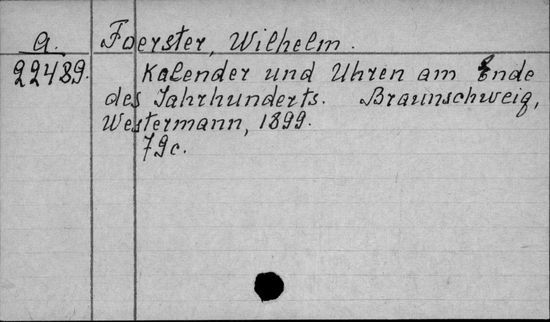 a. Foerster, Wilhelm.
22489. Kalender und Uhren am Ende
des Jahrhunderts. Braunschweig,
Westermann, 1899.
79c.